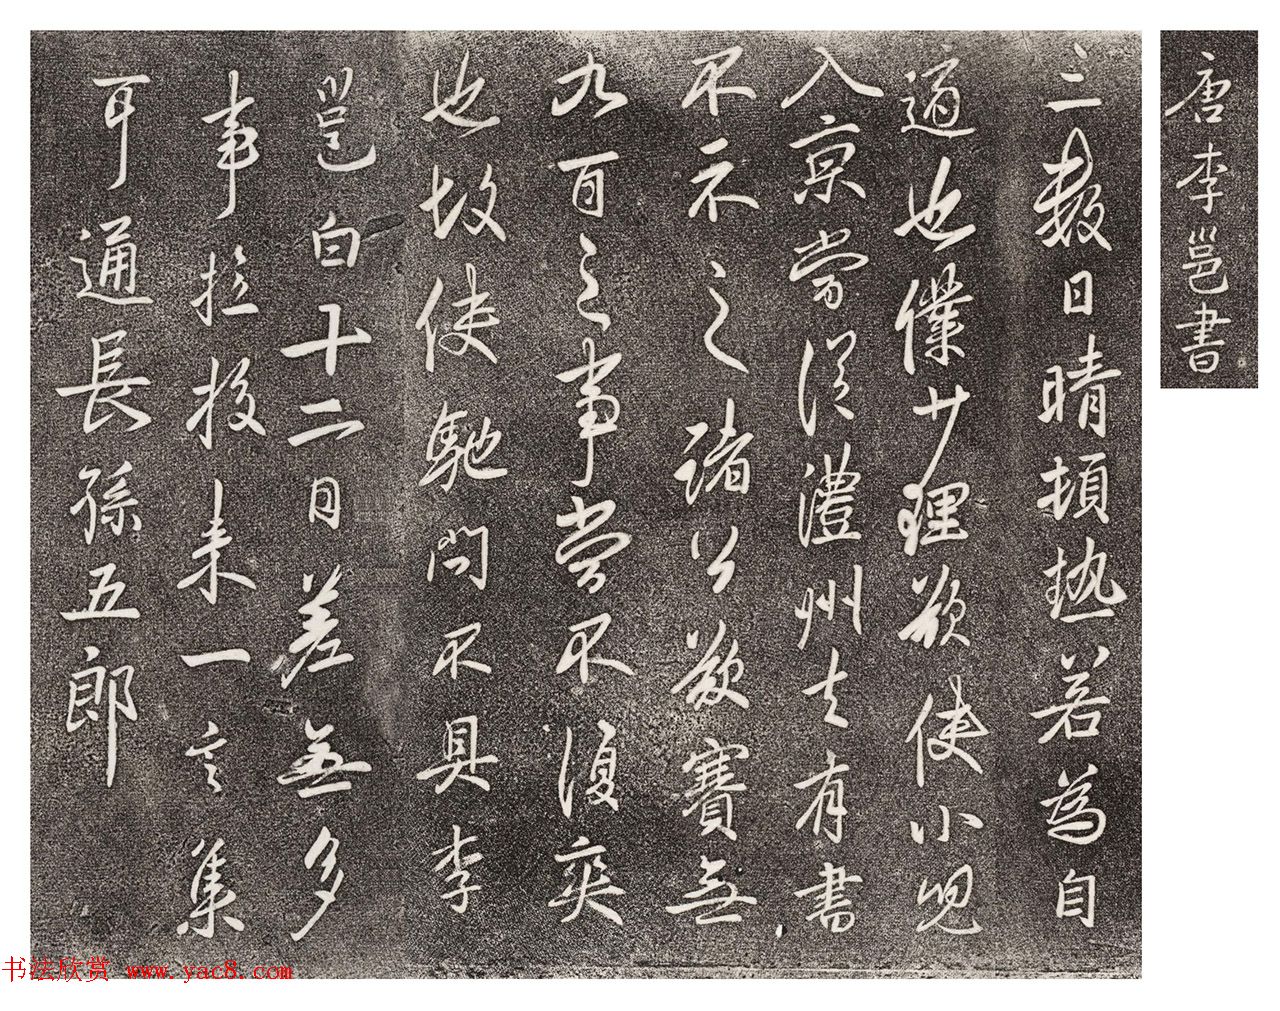 唐李邕書
三數日晴頓熱若為自
適也僕少理欲使小兒
入京當從澧州去有書
不示之諸公欲賽無
九百之事當不復爽
也故使馳問不具李
邕白十二日差無多
事來一言集
耳通長孫五郎
书法欣赏 www.yac8.com